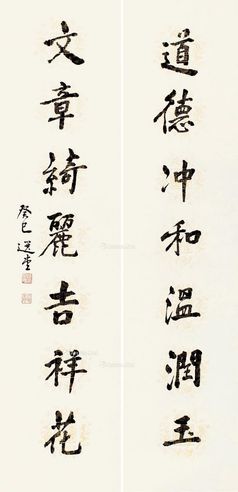 道德冲和溫潤玉
文章綺麗吉祥花
癸巳選堂